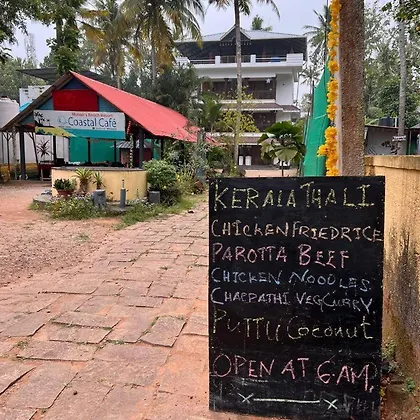 Mohan's Beach Resort
Coastal Café
KERALA THALI
CHICKEN FRIED RICE
PAROTTA BEEF
CHICKEN NOODLES
CHAPPATHI VEG CURRY
PUTTU COCONUT
OPEN AT 6 AM.